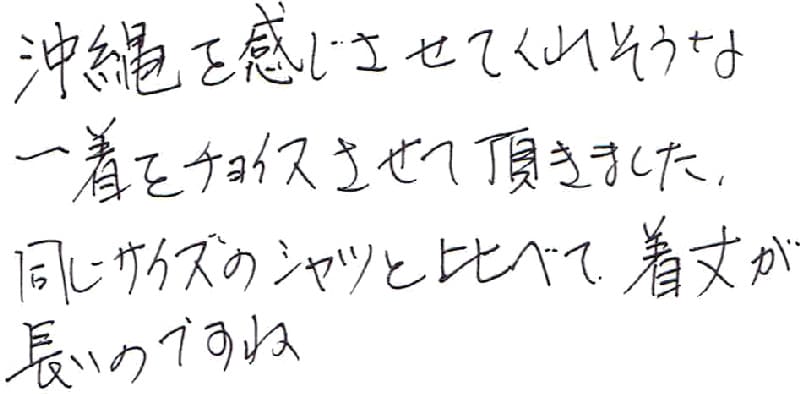 沖縄を感じさせてくれそうな
一着をチョイスさせて頂きました.
同じサイズのシャツと比べて着丈が
長いのですね